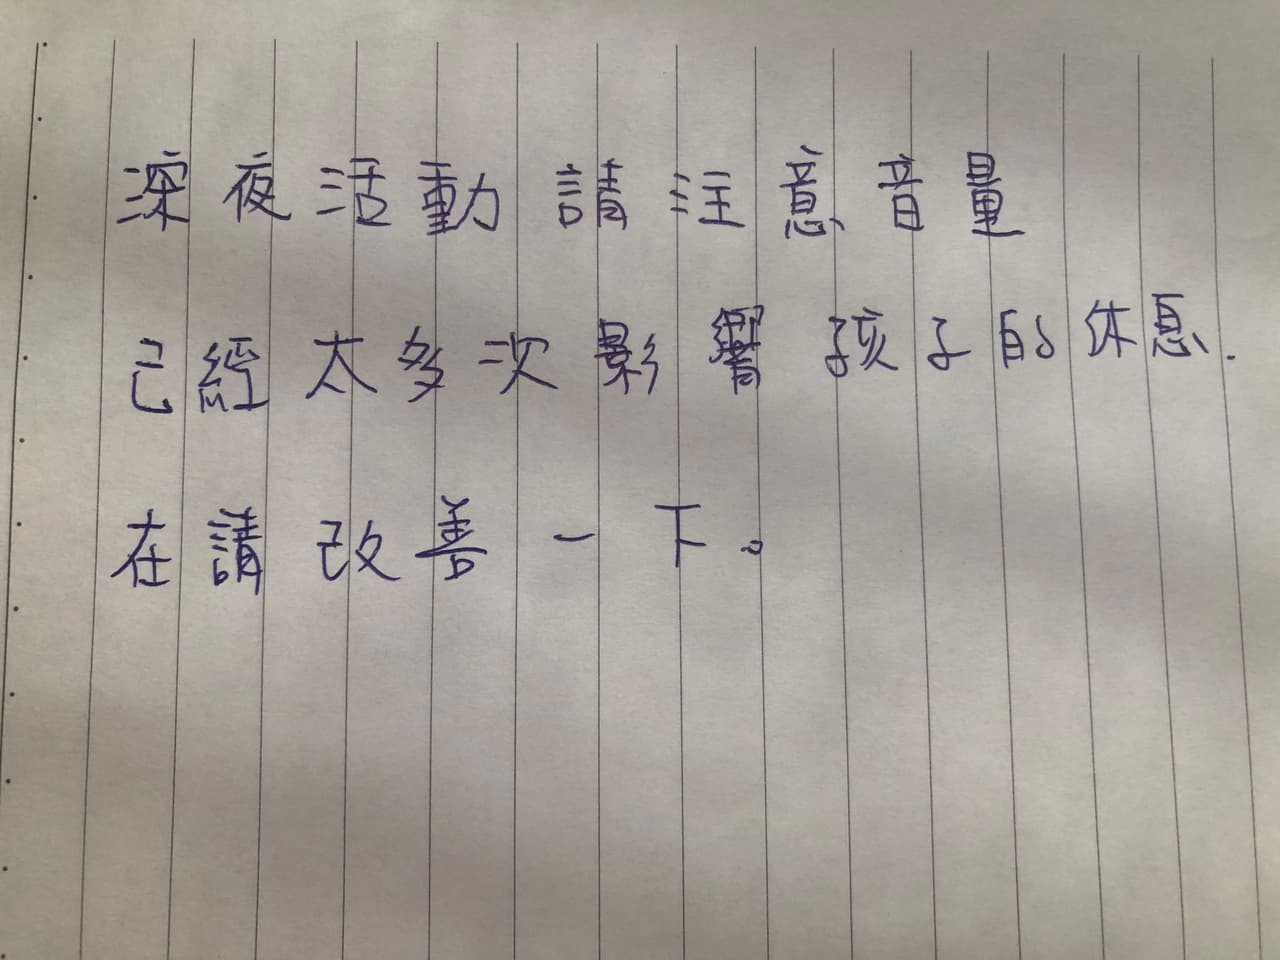 深夜活動 請注意音量
已經太多次影響孩子的休息.
在請改善一下。